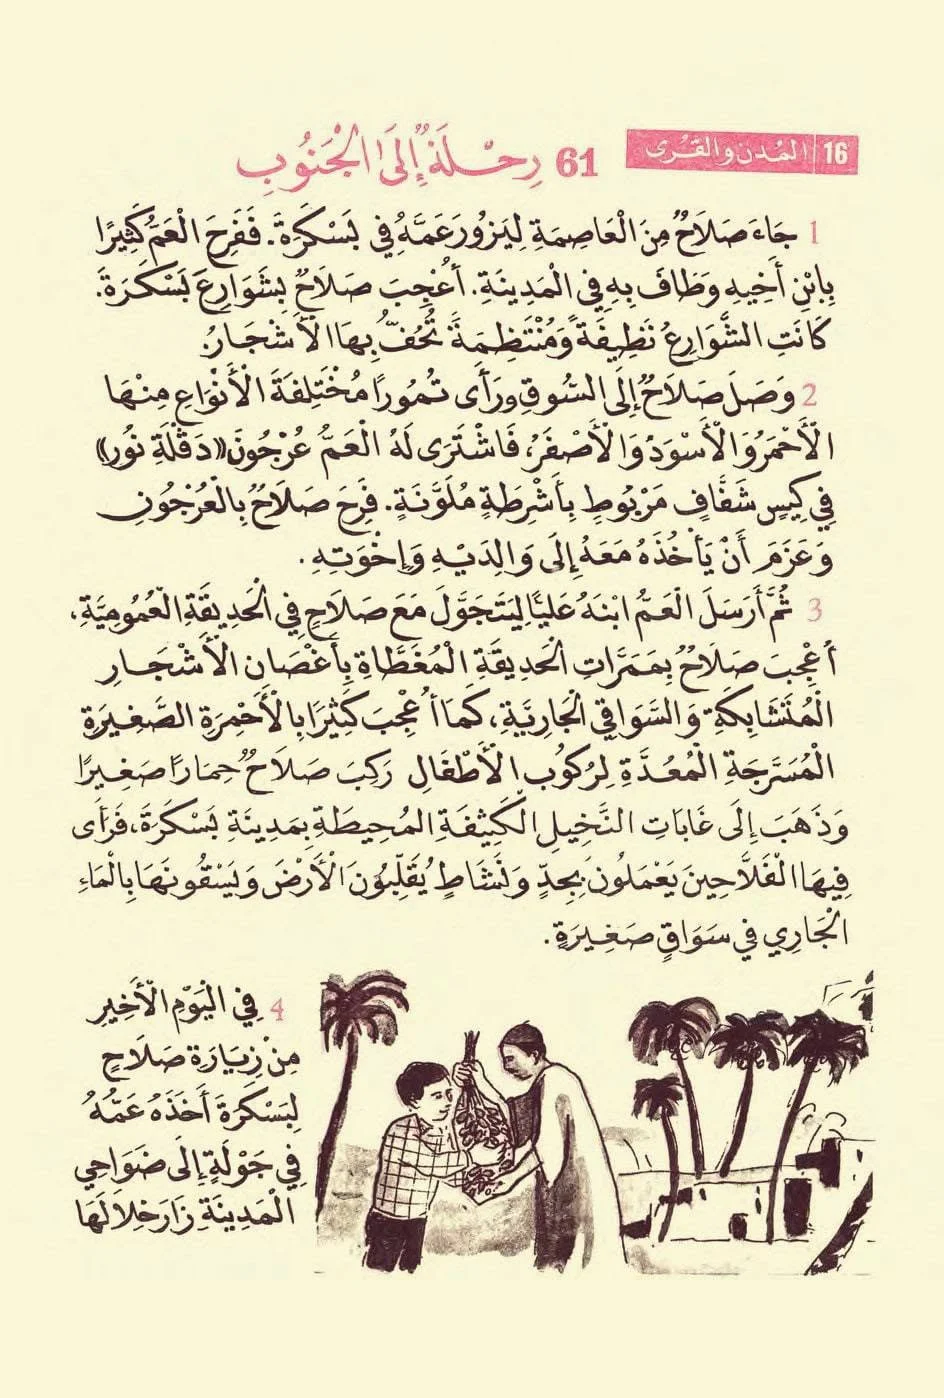 16 المدن والقرى
61 رِحْلَةٌ إِلَى الْجَنُوبِ
1 جَاءَ صَلَاحٌ مِنَ الْعَاصِمَةِ لِيَزُورَ عَمَّهُ فِي بَسْكَرَةَ. فَفَرِحَ الْعَمُّ كَثِيرًا
بِابْنِ أَخِيهِ وَطَافَ بِهِ فِي الْمَدِينَةِ. أُعْجِبَ صَلَاحٌ بِشَوَارِعَ بَسْكَرَةَ.
كَانَتِ الشَّوَارِعُ نَظِيفَةً وَمُنْتَظِمَةً تُحُفُّ بِهَا الْأَشْجَارُ.
2 وَصَلَ صَلَاحٌ إِلَى السُّوقِ وَرَأَى تُمُورًا مُخْتَلِفَةَ الْأَنْوَاعِ مِنْهَا
الْأَحْمَرُ وَالْأَسْوَدُ وَالْأَصْفَرُ، فَاشْتَرَى لَهُ الْعَمُّ عُرْجُونَ «دَقْلَةِ نُورِ»
فِي كِيسٍ شَفَّافٍ مَرْبُوطٍ بِأَشْرِطَةٍ مُلَوَّنَةٍ. فَرِحَ صَلَاحٌ بِالْعُرْجُونِ
وَعَزَمَ أَنْ يَأْخُذَهُ مَعَهُ إِلَى وَالِدَيْهِ وَإِخْوَتِهِ.
3 ثُمَّ أَرْسَلَ الْعَمُّ ابْنَهُ عَلِيًّا لِيَتَجَوَّلَ مَعَ صَلَاحٍ فِي الْحَدِيقَةِ الْعُمُومِيَّةِ،
أُعْجِبَ صَلَاحٌ بِمَمَرَّاتِ الْحَدِيقَةِ الْمُغَطَّاةِ بِأَغْصَانِ الْأَشْجَارِ
الْمُتَشَابِكَةِ وَالسَّوَاقِي الْجَارِيَةِ، كَمَا أُعْجِبَ كَثِيرًا بِالْأَحْمِرَةِ الصَّغِيرَةِ
الْمُسَرَّجَةِ الْمُعَدَّةِ لِرُكُوبِ الْأَطْفَالِ رَكِبَ صَلَاحٌ حِمَارًا صَغِيرًا
وَذَهَبَ إِلَى غَابَاتِ النَّخِيلِ الْكَثِيفَةِ الْمُحِيطَةِ بِمَدِينَةِ بَسْكَرَةَ، فَرَأَى
فِيهَا الْفَلَّاحِينَ يَعْمَلُونَ بِجِدٍّ وَنَشَاطٍ يُقَلِّبُونَ الْأَرْضَ وَيَسْقُونَهَا بِالْمَاءِ
الْجَارِي فِي سَوَاقٍ صَغِيرَةٍ.
4 فِي الْيَوْمِ الْأَخِيرِ
مِنْ زِيَارَةِ صَلَاحٍ
لِبَسْكَرَةَ أَخَذَهُ عَمُّهُ
فِي جَوْلَةٍ إِلَى ضَوَاحِي
الْمَدِينَةِ زَارَ خِلَالَهَا